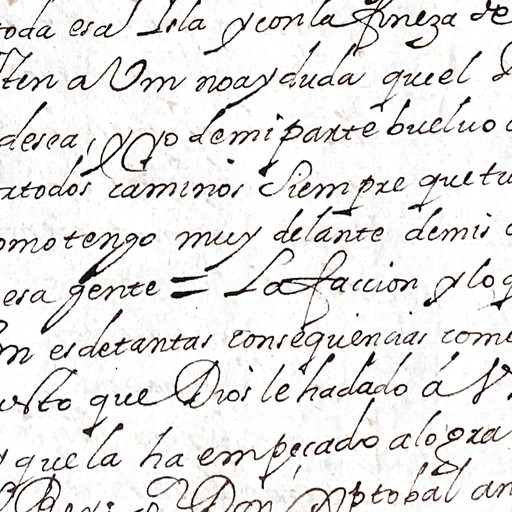 toda esa Isla y con la fineza de
ten a Vm no ay duda que el
desea, y yo de mi parte buelvo
todos caminos siempre que tu
omo tengo muy delante de mis
esa gente = La faccion y lo q
m es de tantas consequencias com
usto que Dios le ha dado á V
y que la ha empeçado a logra
Don Xptobal an